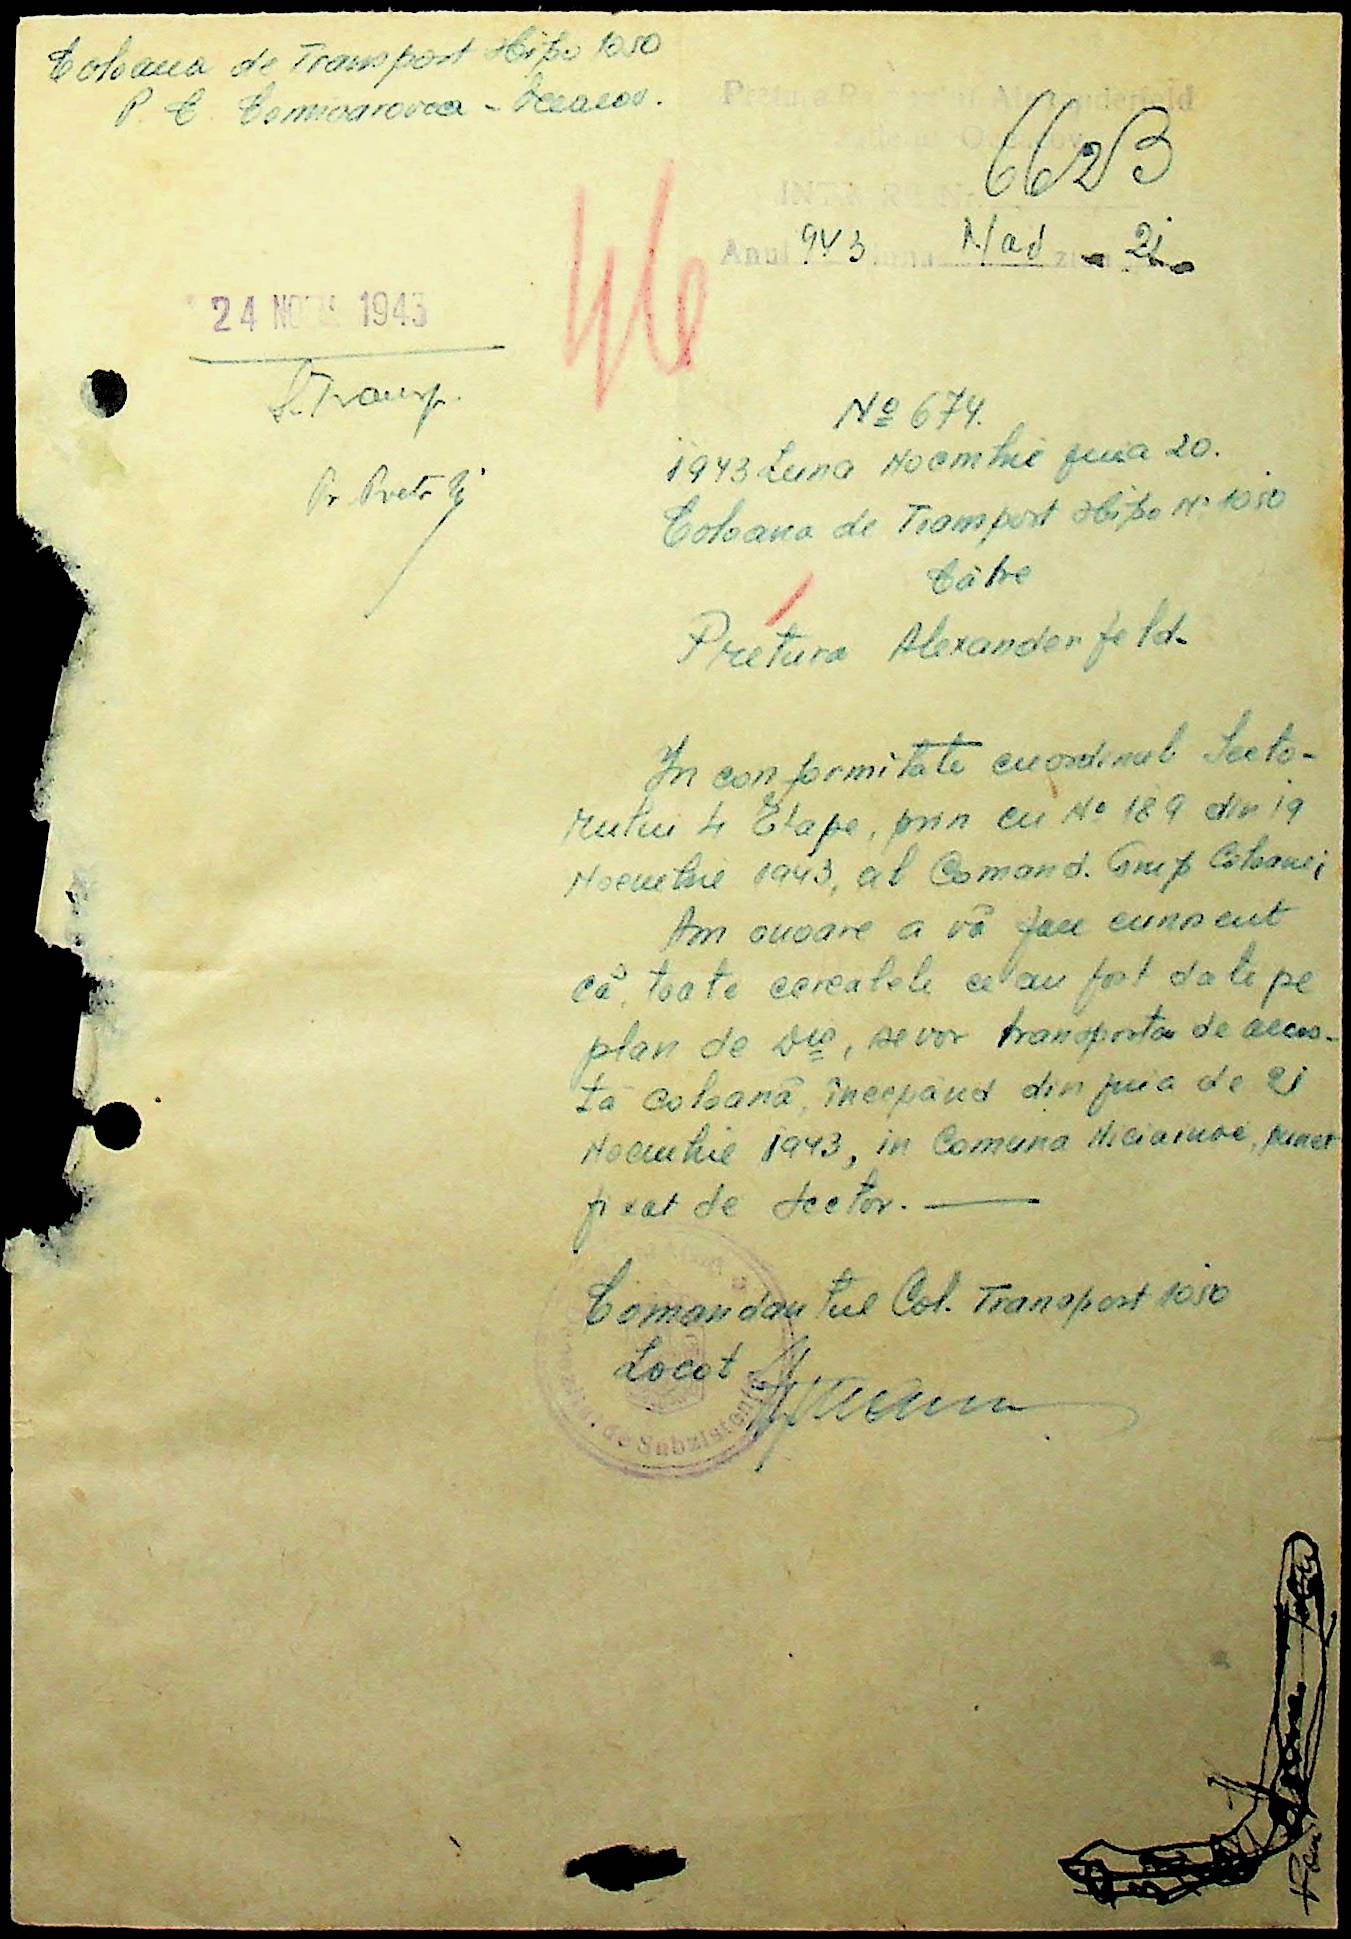 Coloana de Transport Hipo 1050
P. C.
Pretura Alexanderfeld
6623
INTRARE Nr.
Anul 943 Luna Noe ziua 21
46
24 NOEM 1943
S. Transp.
Pr. Pretor
Nº 674.
1943 Luna Noembrie ziua 20.
Coloana de Transport Hipo Nº 1050
Către
Pretura Alexanderfeld.
In conformitate cu ordinul Secto-
rului 4 Etape, prin cu Nº 189 din 19
Noembrie 1943, al Comand. Grup Coloane;
Am onoare a vă face cunoscut
că, toate cerealele ce au fost date pe
plan de Div, se vor transporta de aceas-
tă coloană, începând din ziua de 21
Noembrie 1943, in Comuna punct
fixat de Sector.
Comandantul Col. Transport 1050
Locot
de Subzistență